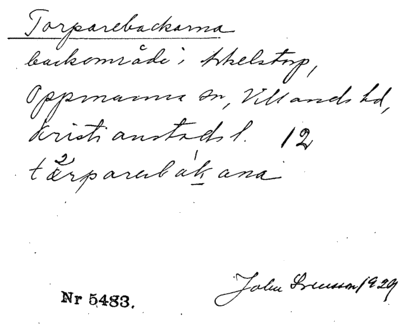 Torparebackarna
backområde i Arkelstorp,
Oppmanna sn, Villands hd,
Kristianstads l. 12
tårparebákana
John Svensson 1929
Nr 5483.